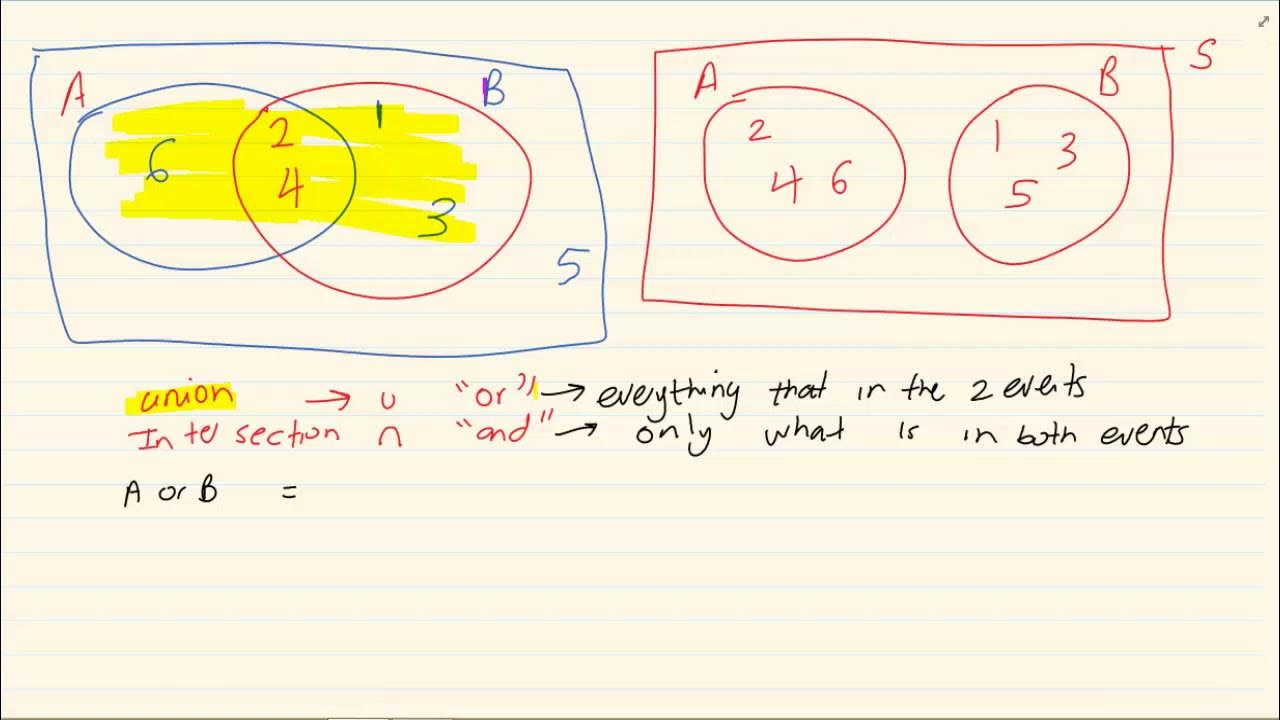 A B
6 2 1
4 3
5
A B S
2 1 3
4 6 5
union → ∪ "or" → everything that in the 2 events
Inter section ∩ "and" → only what is in both events
A or B =